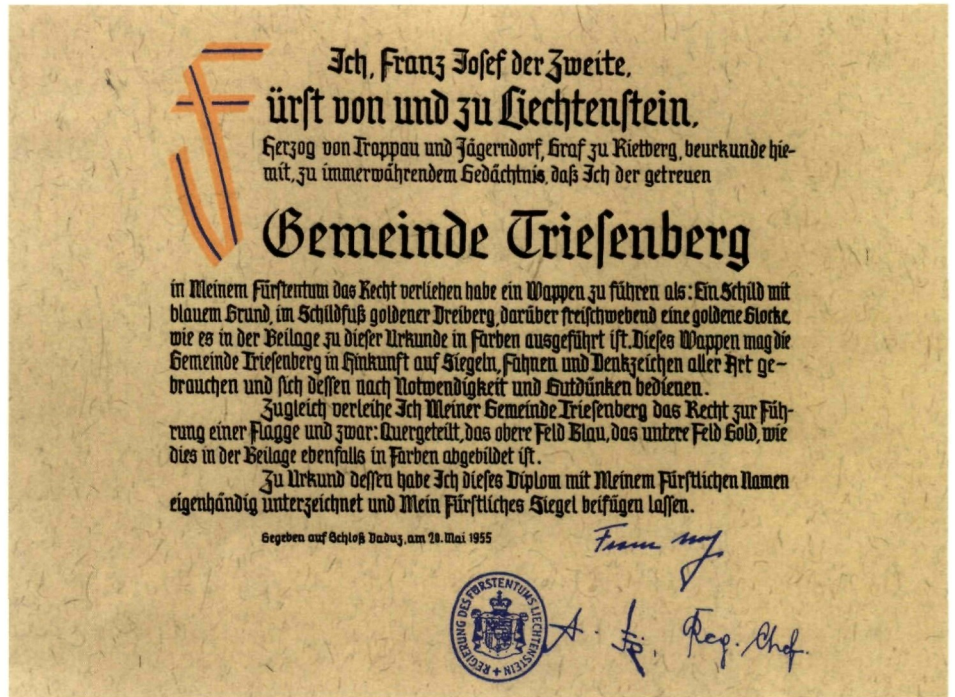 Ich, Franz Josef der Zweite,
Fürst von und zu Liechtenstein,
Herzog von Troppau und Jägerndorf, Graf zu Rietberg, beurkunde hie-
mit, zu immerwährendem Gedächtnis, daß Ich der getreuen
Gemeinde Triesenberg
in Meinem Fürstentum das Recht verliehen habe ein Wappen zu führen als: Ein Schild mit
blauem Grund, im Schildfuß goldener Dreiberg, darüber freischwebend eine goldene Glocke,
wie es in der Beilage zu dieser Urkunde in Farben ausgeführt ist. Dieses Wappen mag die
Gemeinde Triesenberg in Hinkunft auf Siegeln, Fahnen und Denkzeichen aller Art ge-
brauchen und sich dessen nach Notwendigkeit und Gutdünken bedienen.
Zugleich verleihe Ich Meiner Gemeinde Triesenberg das Recht zur Füh-
rung einer Flagge und zwar: Quergeteilt, das obere Feld Blau, das untere Feld Gold, wie
dies in der Beilage ebenfalls in Farben abgebildet ist.
Zu Urkund dessen habe Ich dieses Diplom mit Meinem Fürstlichen Namen
eigenhändig unterzeichnet und Mein Fürstliches Siegel beifügen lassen.
Gegeben auf Schloß Vaduz, am 20. Mai 1955
Franz
REGIERUNG DES FÜRSTENTUMS LIECHTENSTEIN
A. Reg. Chef.